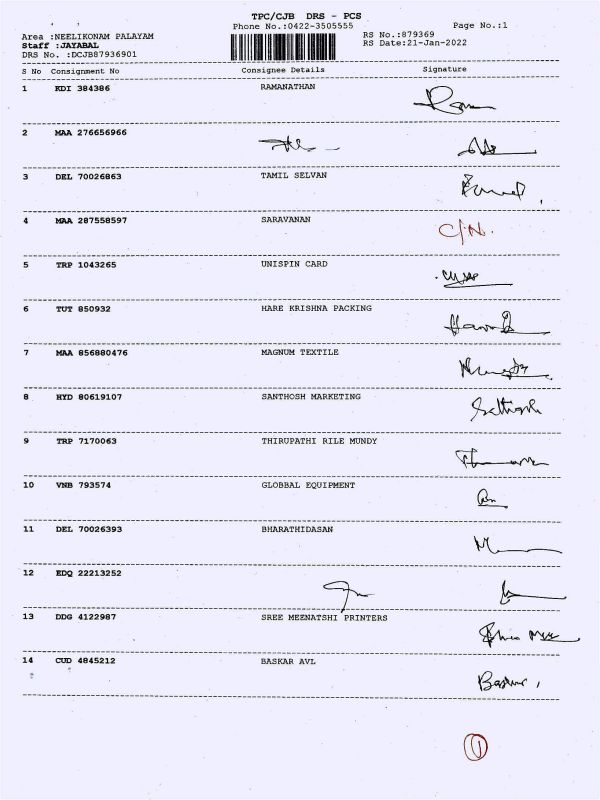 TPC/CJB DRS - PCS
Phone No.:0422-3505555 Page No.:1
Area :NEELIKONAM PALAYAM RS No.:879369
Staff :JAYABAL RS Date:21-Jan-2022
DRS No. :DCJB87936901
S No Consignment No Consignee Details Signature
1 KDI 384386 RAMANATHAN
2 MAA 276656966
3 DEL 70026863 TAMIL SELVAN
4 MAA 287558597 SARAVANAN C/N.
5 TRP 1043265 UNISPIN CARD
6 TUT 850932 HARE KRISHNA PACKING
7 MAA 856880476 MAGNUM TEXTILE
8 HYD 80619107 SANTHOSH MARKETING
9 TRP 7170063 THIRUPATHI RILE MUNDY
10 VNB 793574 GLOBBAL EQUIPMENT
11 DEL 70026393 BHARATHIDASAN
12 EDQ 22213252
13 DDG 4122987 SREE MEENATSHI PRINTERS
14 CUD 4845212 BASKAR AVL
1